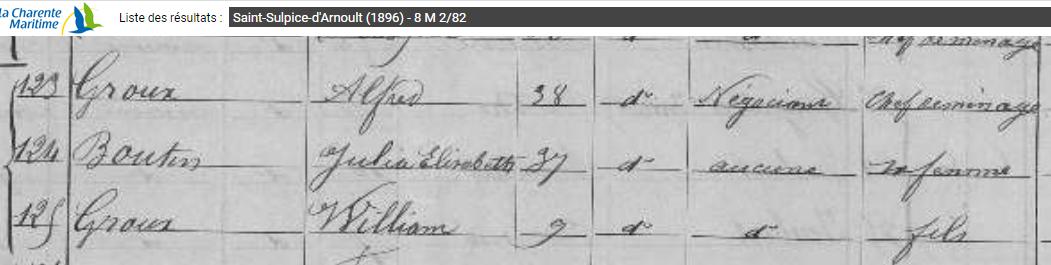 la Charente
Maritime
Liste des résultats : Saint-Sulpice-d'Arnoult (1896) - 8 M 2/82
chef de ménage
123 Groux Alfred 38 do Négociant chef de ménage
124 Boutin Julia Elisabeth 37 do aucune sa femme
125 Groux William 9 do do fils